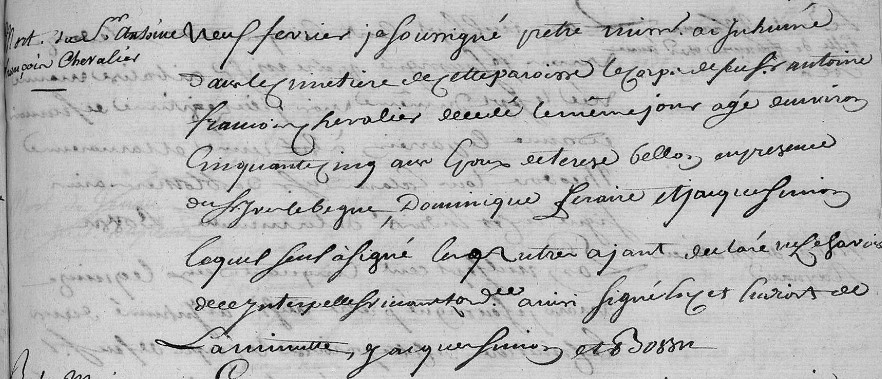 Mort. du Sr. Antoine
françois Chevalier
Neuf fevrier je soussigné prêtre miss.re ai inhumé
dans le cimetiere de cette paroisse le corps de feu Sr. antoine
francois chevalier decedé le meme jour agé d'environ
cinquante cinq ans Epoux de terese bellon en presence
du Sr. yves le begue, Dominique et jacque simon
lequel seul a signé les autres ajant declaré ne le savoir
de ce interpellés suivant lordce ainsi signé
La minutte, jacque simon et